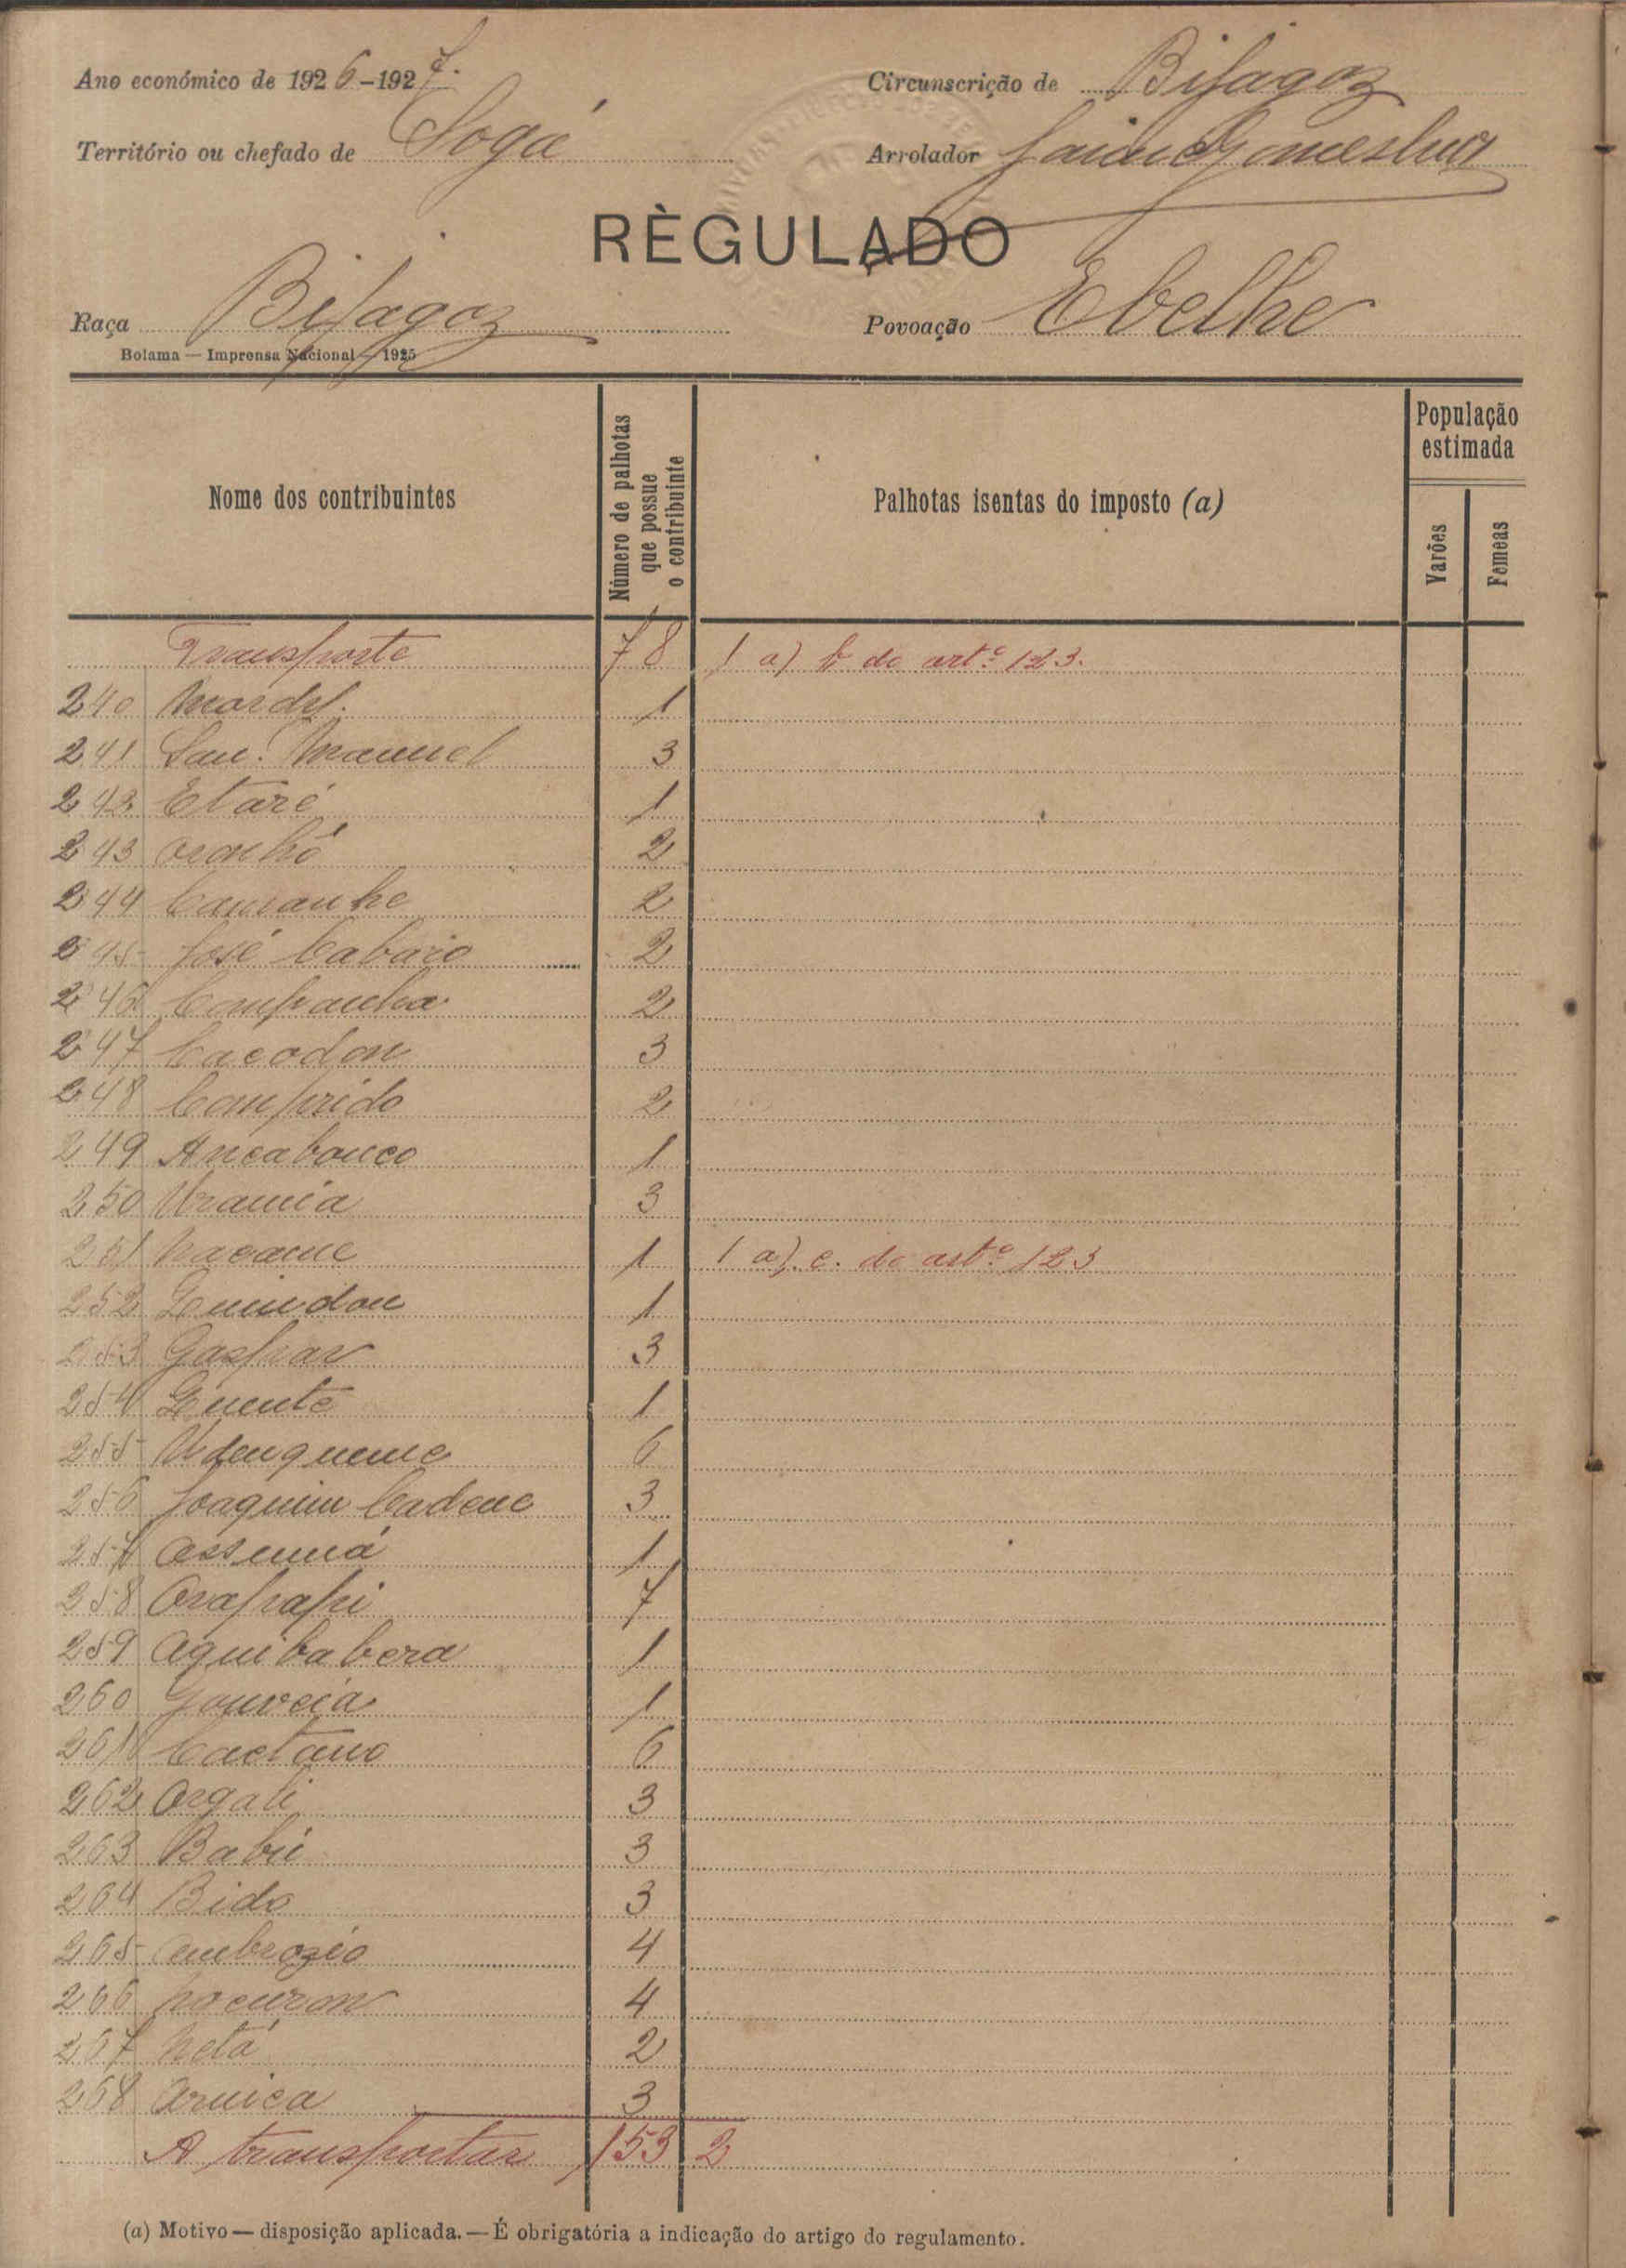 Ano económico de 1926-1927.
Circunscrição de Bijagoz
Território ou chefado de Sogá
Arrolador
RÈGULADO
Raça Bijagoz
Povoação Ebelhe
Bolama — Imprensa Nacional — 1925
Nome dos contribuintes
Número de palhotas que possue o contribuinte
Palhotas isentas do imposto (a)
População estimada
Varões
Fêmeas
Transporte 78 1 a) b do artº 123.
240 1
241 Manuel 3
242 Etaré 1
243 2
244 2
245 José Cabaio 2
246 Companha 2
247 Cacodon 3
248 Comprido 2
249 Ancabouco 1
250 Urania 3
251 Nacame 1 1 a) c. do artº 123
252 1
253 Gaspar 3
254 1
255 6
256 Joaquim Cadene 3
257 1
258 Orapapi 7
259 Aquibabera 1
260 Gouveia 1
261 Caetano 6
262 Orgali 3
263 Babú 3
264 Bido 3
265 Ambrozio 4
266 Nocuron 4
267 Netá 2
268 Arnica 3
A transportar 153 2
(a) Motivo — disposição aplicada. — É obrigatória a indicação do artigo do regulamento.